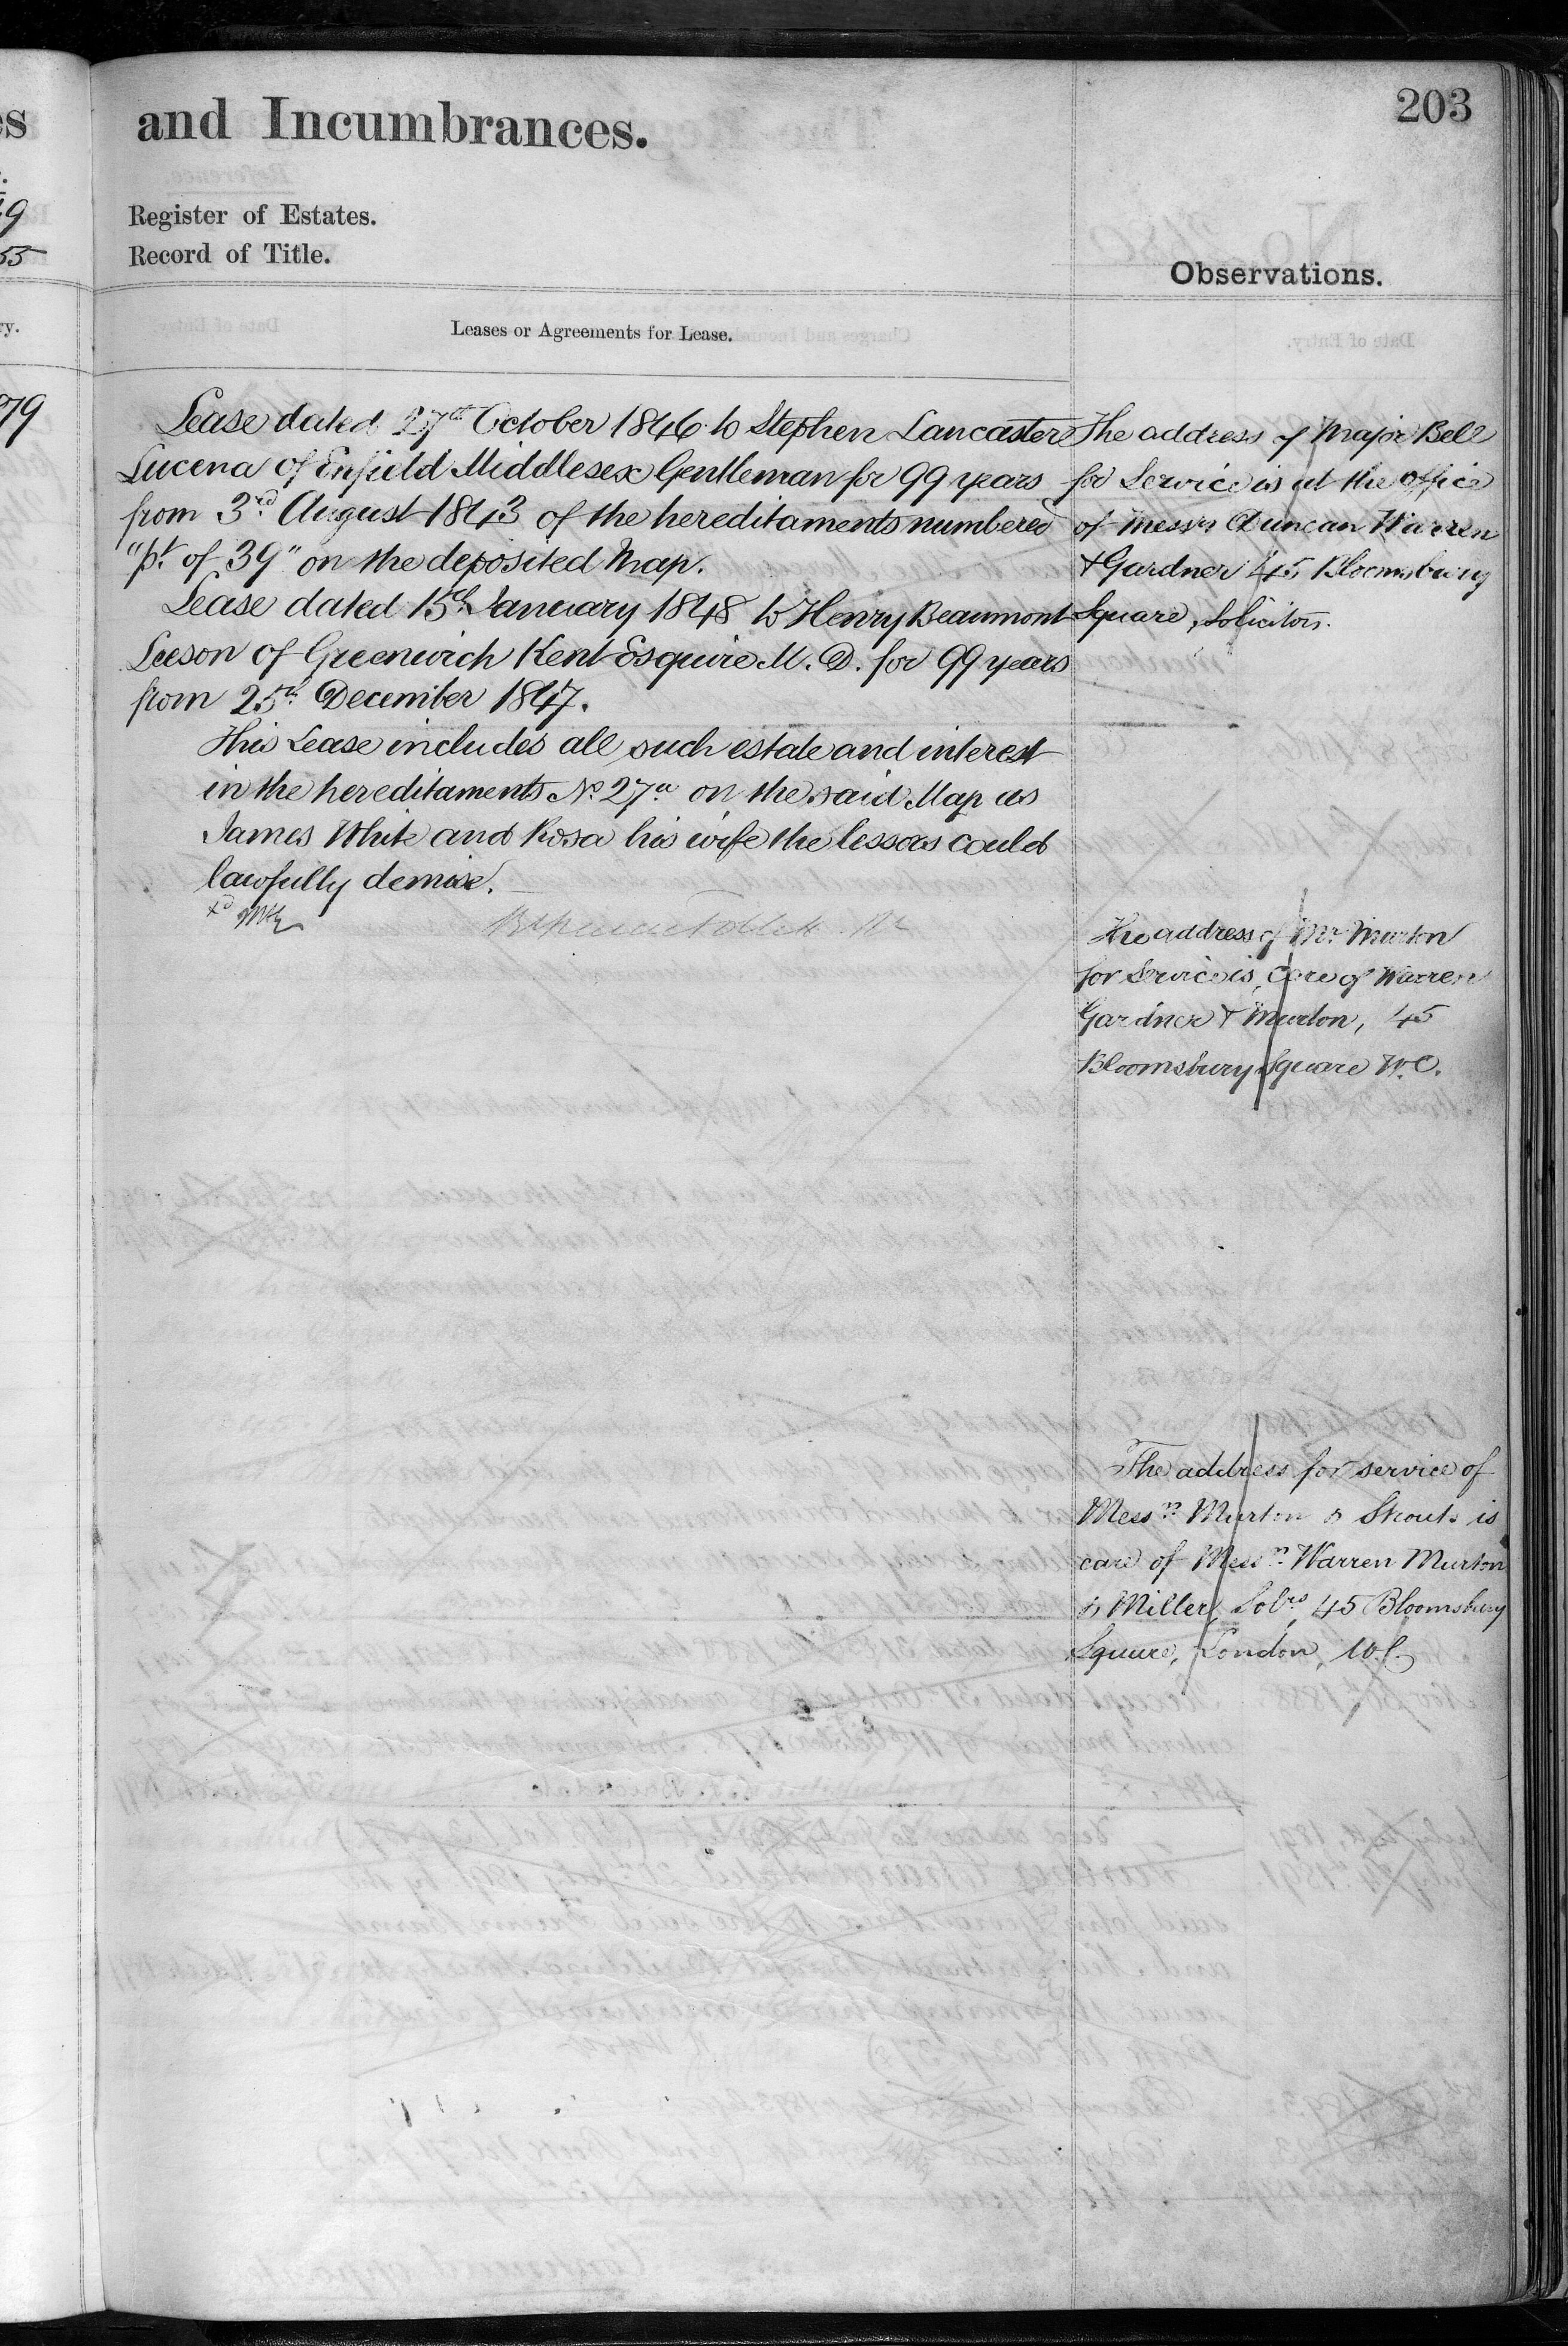 203
and Incumbrances.
Register of Estates.
Record of Title.
Observations.
Leases or Agreements for Lease.
Lease dated 27th October 1846 to Stephen Lancaster
Lucena of Enfield Middlesex Gentleman for 99 years
from 3rd August 1843 of the hereditaments numbered
"pt. of 39" on the deposited Map.
Lease dated 15th January 1848 to Henry Beaumont
Leeson of Greenwich Kent Esquire M.D. for 99 years
from 25th December 1847.
This Lease includes all such estate and interest
in the hereditaments No. 27a on the said Map as
James White and Rosa his wife the lessors could
lawfully demise.
The address of Major Bell
for Service is at the office
of Messrs Duncan Warren
& Gardner 45 Bloomsbury
Square, Solicitors.
The address of Mr Murton
for Service is, Care of Warren
Gardner & Murton, 45
Bloomsbury Square W.C.
The address for service of
Messrs Murton & Shouts is
care of Messrs Warren Murton
& Miller, Solrs, 45 Bloomsbury
Square, London, W.C.